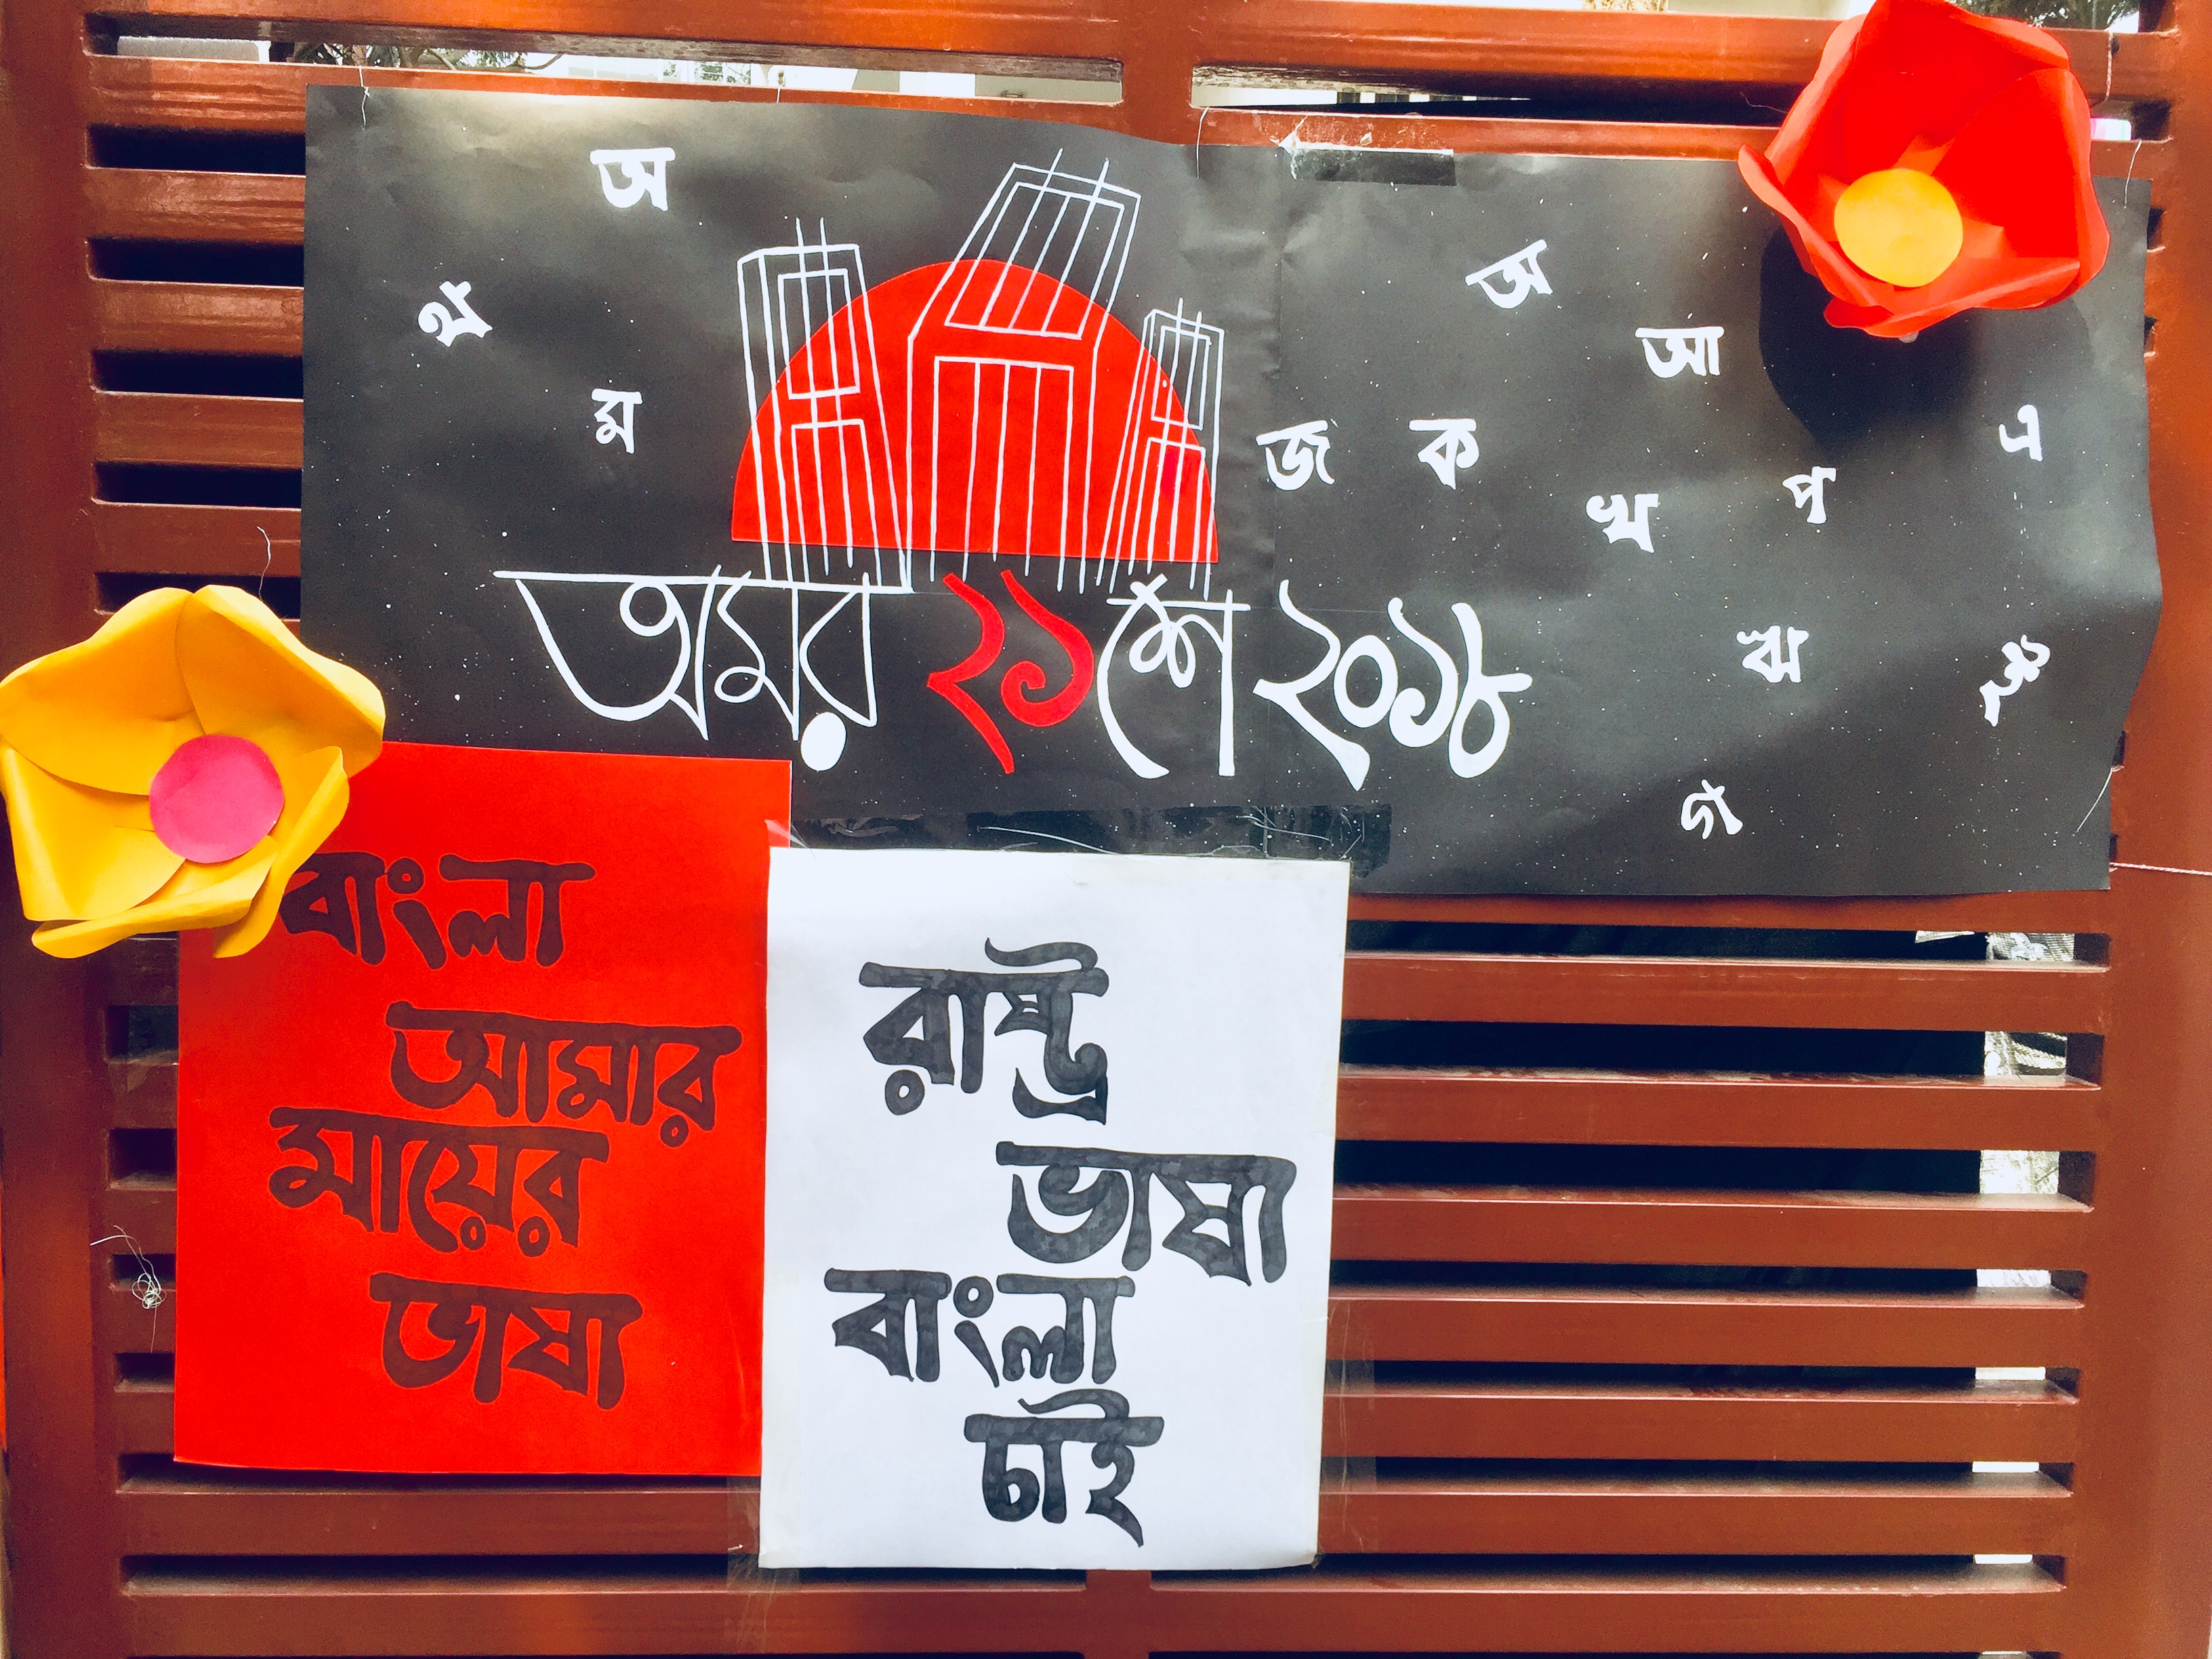 অ
অ
থ
আ
ম
জ ক
এ
খ
প
অমর ২১শে ২০১৮
গ
বাংলা
আমার
মায়ের
ভাষা
রাষ্ট্র
ভাষা
বাংলা
চাই